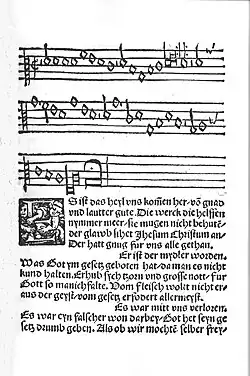 ES ist das heyl vns kom̃en her/ võ gnad
vnd lautter gute. Die werck die helffen
nymmer meer/ sie mugen nicht behutẽ/
der glawb sihet Jhesum Christum an/
Der hatt gnug fur vns alle gethan/
Er ist der mydler worden.
Was Got ym gesetz gebotten hat/ da man es nicht
kund halten. Erhub sych tzorn vnd grosse nott/ fur
Gott so manichfalte. Vom fleisch wolt nicht er/
aus der geyst/ vom gesetz erfodert allermeyst.
Es war mitt vns verloren.
Es war eyn falscher won darbey/ Got het seyn ge
setz drumb geben. Als ob wir mochtẽ selber frey/